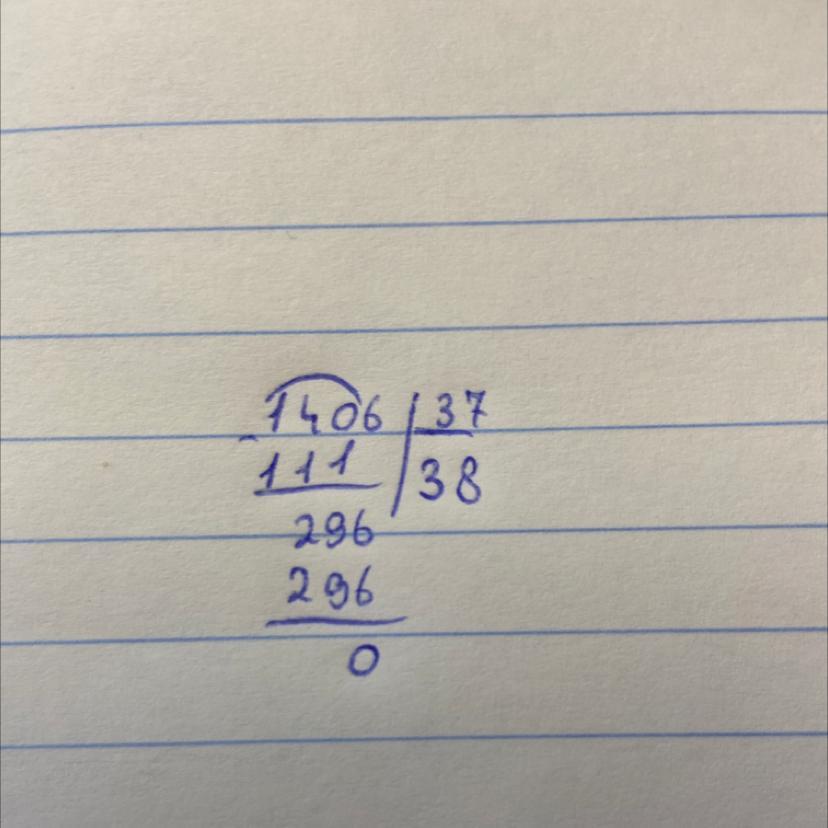 1406 37
- 111 38
296
296
0